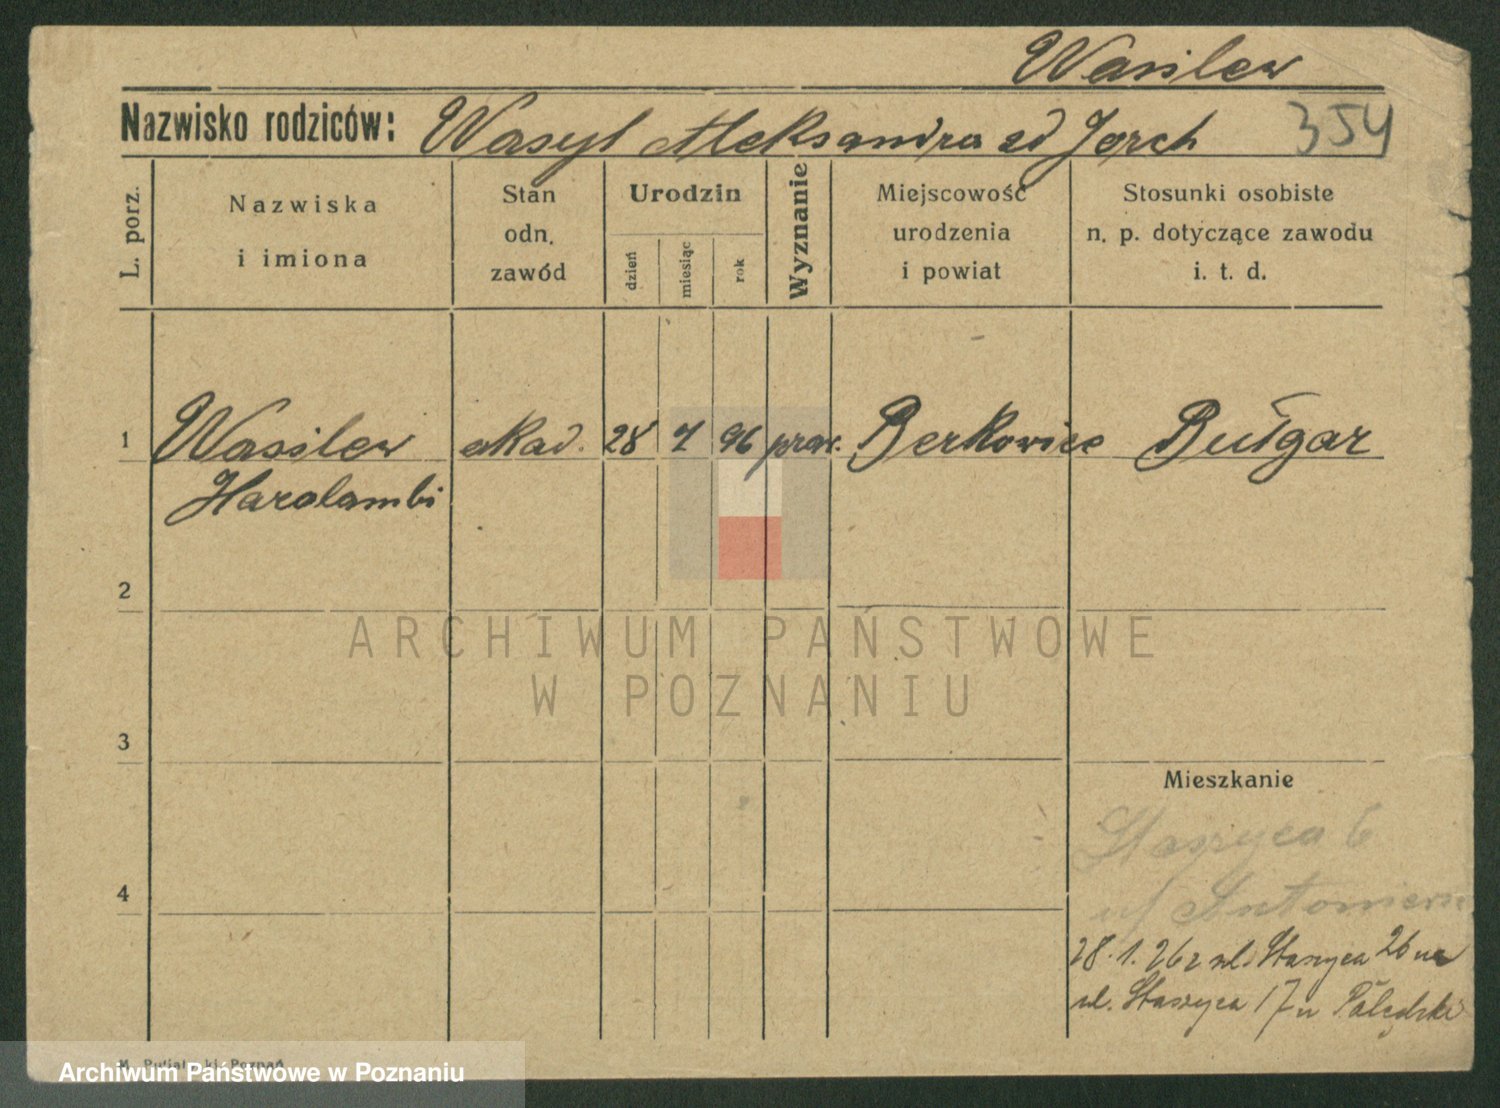 Wasilew
Nazwisko rodziców: Wasyl Aleksandra zd Jorch 354
L. porz.
Nazwiska
i imiona
Stan
odn.
zawód
Urodzin
dzień
miesiąc
rok
Wyznanie
Miejscowość
urodzenia
i powiat
Stosunki osobiste
n. p. dotyczące zawodu
i. t. d.
1 Wasilew akad. 28 7 96 praw. Berkowiec Bułgar
Haralambi
2
3
4
Mieszkanie
Staszyca 6
u/
28. 1. 26 z ul. Staszyca 26 na
ul. Staszyca 17 u
ARCHIWUM PAŃSTWOWE
W POZNANIU
Poznań
Archiwum Państwowe w Poznaniu